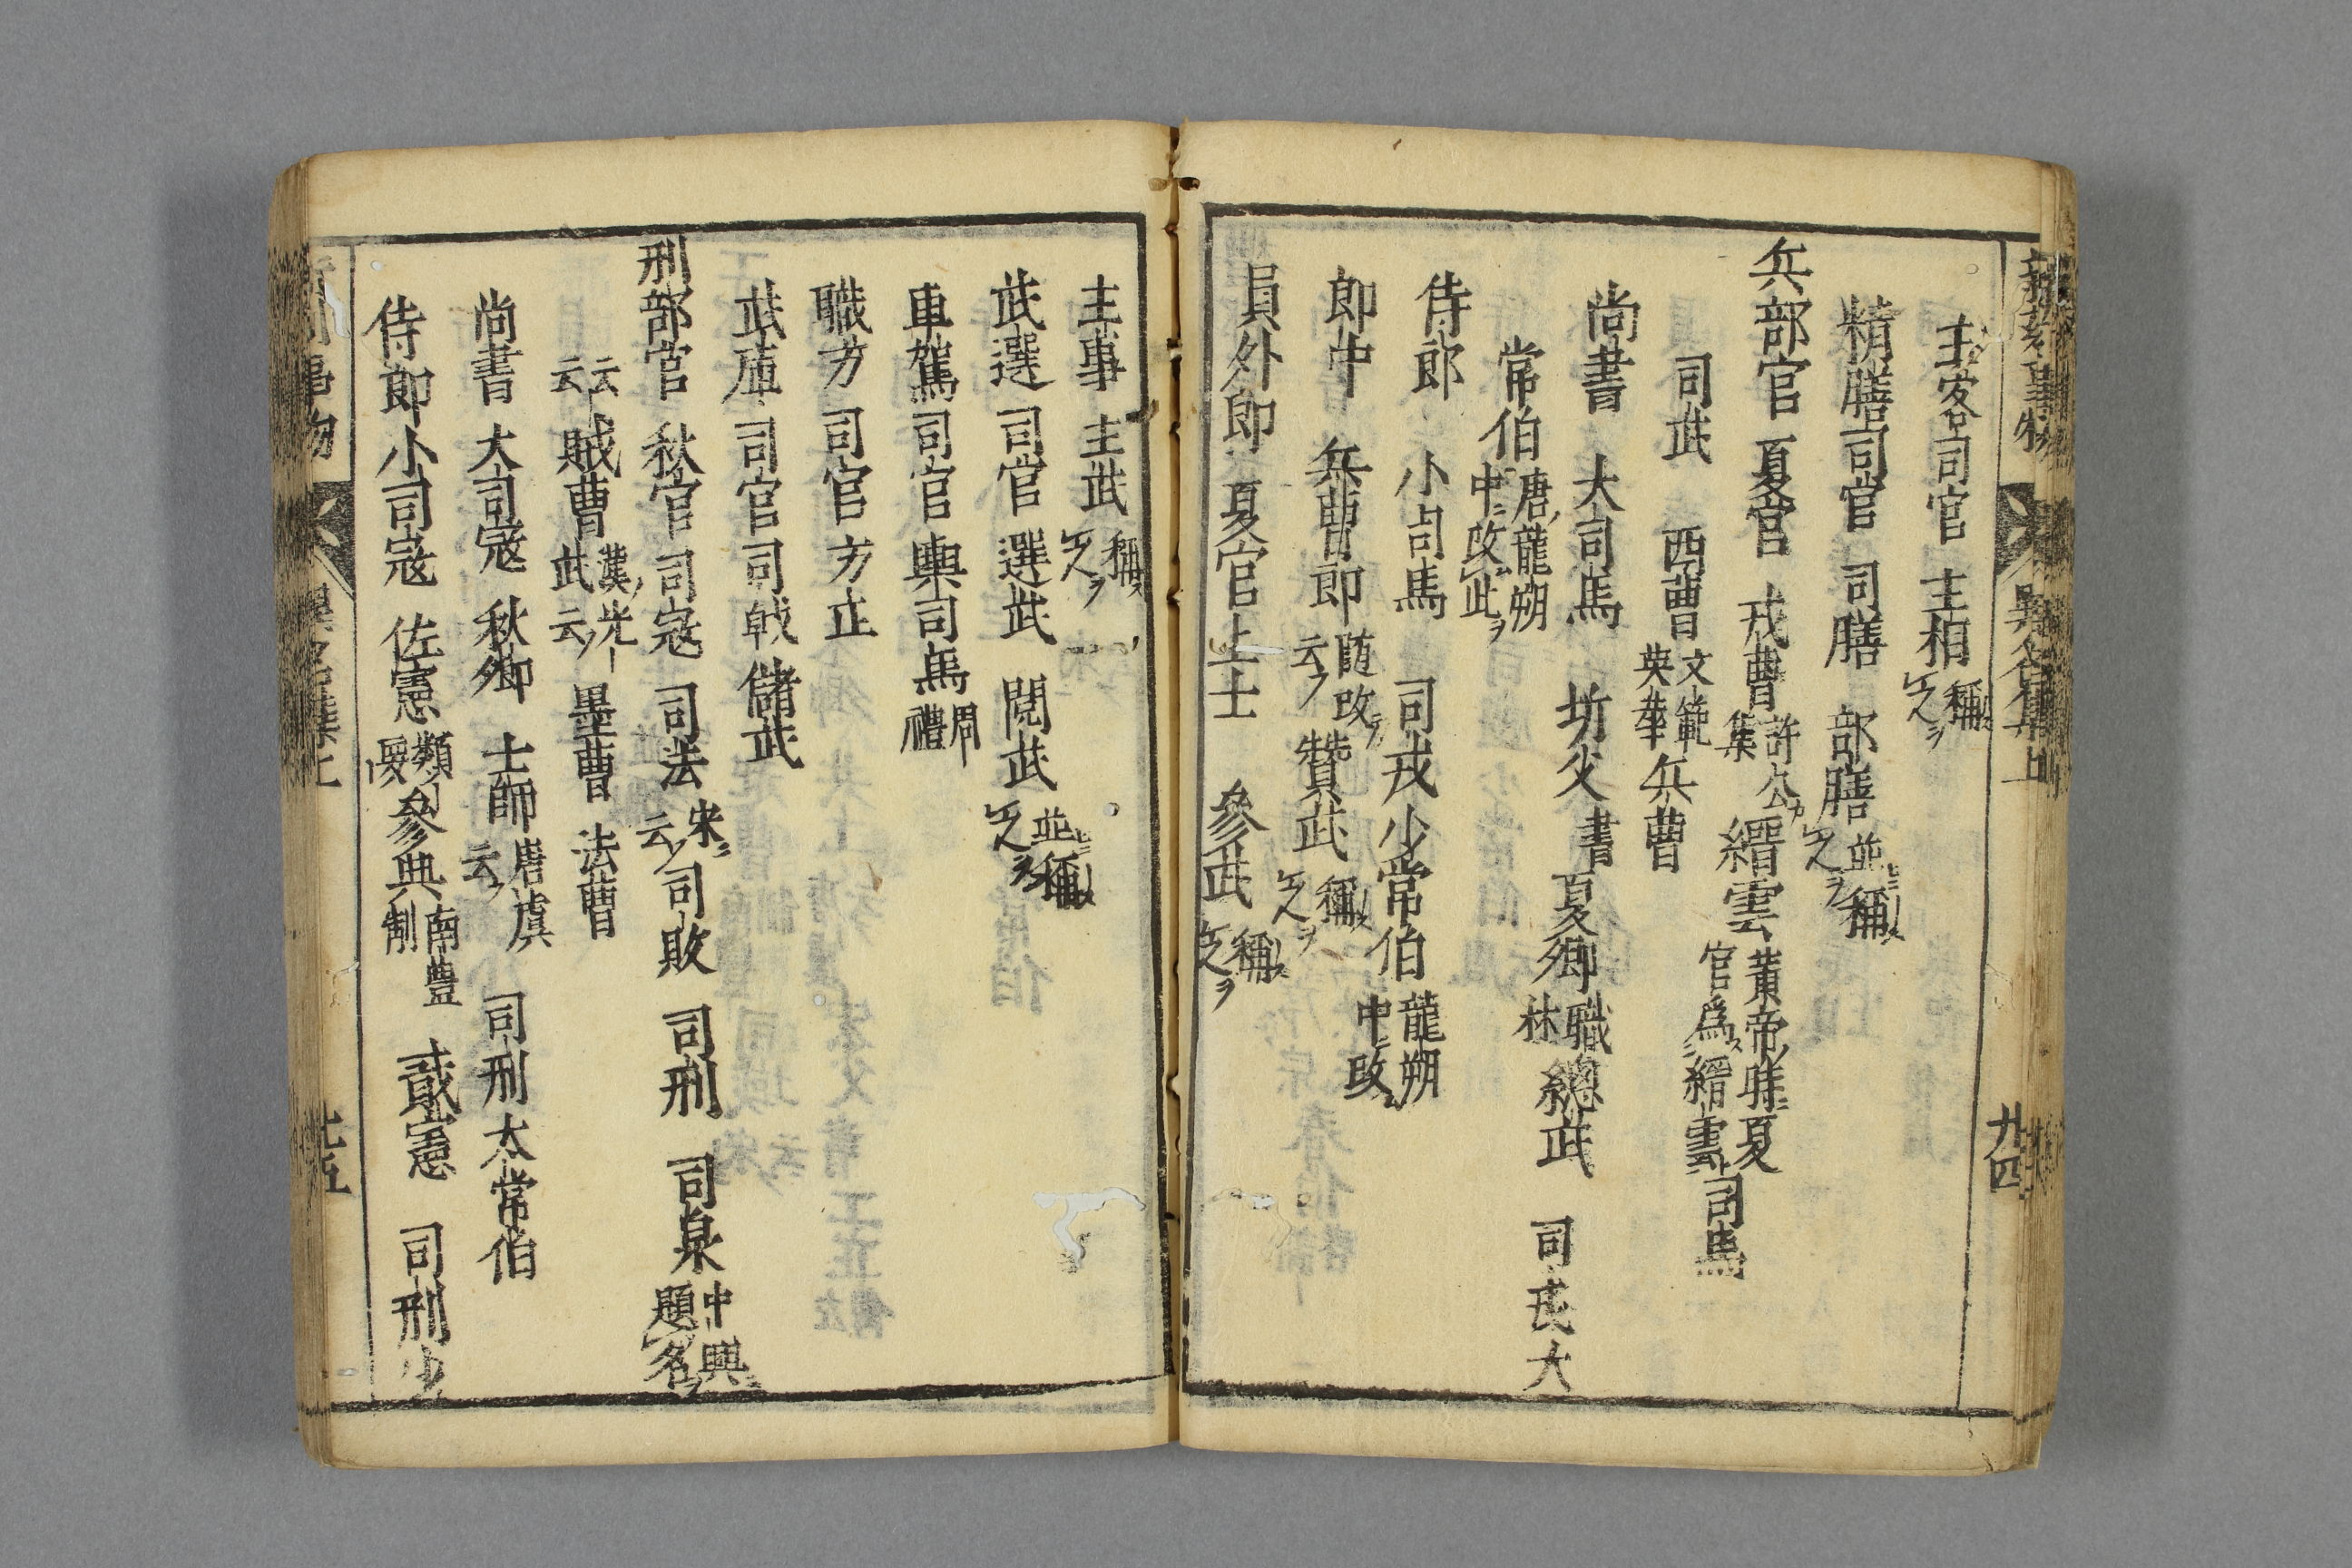 新刻事物異名集上 廿四
主客司官 主相稱之ヲ
精膳司官 司膳 部膳並稱之ヲ
兵部官 夏官 戎曹許公集 縉雲黄帝時夏官爲縉雲 司馬
司武 西曹文範英華 兵曹
尚書 大司馬 圻父書 夏卿職林 總武 司戎大
常伯唐龍朔中改此ヲ
侍郎 小司馬 司戎少常伯龍朔中改
郎中 兵曹郎隨改云 贊武稱之ヲ
員外郎 夏官上士 參武稱之ヲ
主事 主武稱之ヲ
武選司官 選武 閲武並稱之ヲ
車駕司官 輿司馬周禮
職方司官 方正
武庫司官 司戟 儲武
刑部官 秋官 司寇 司法宋云 司敗 司刑 司臬中興題名
云云 賊曹漢光武云 墨曹 法曹
尚書 大司寇 秋卿 士師唐虞云 司刑太常伯
侍郎 小司寇 佐憲類 參典南豊制 貳憲 司刑少
事物 異名集上 廿五